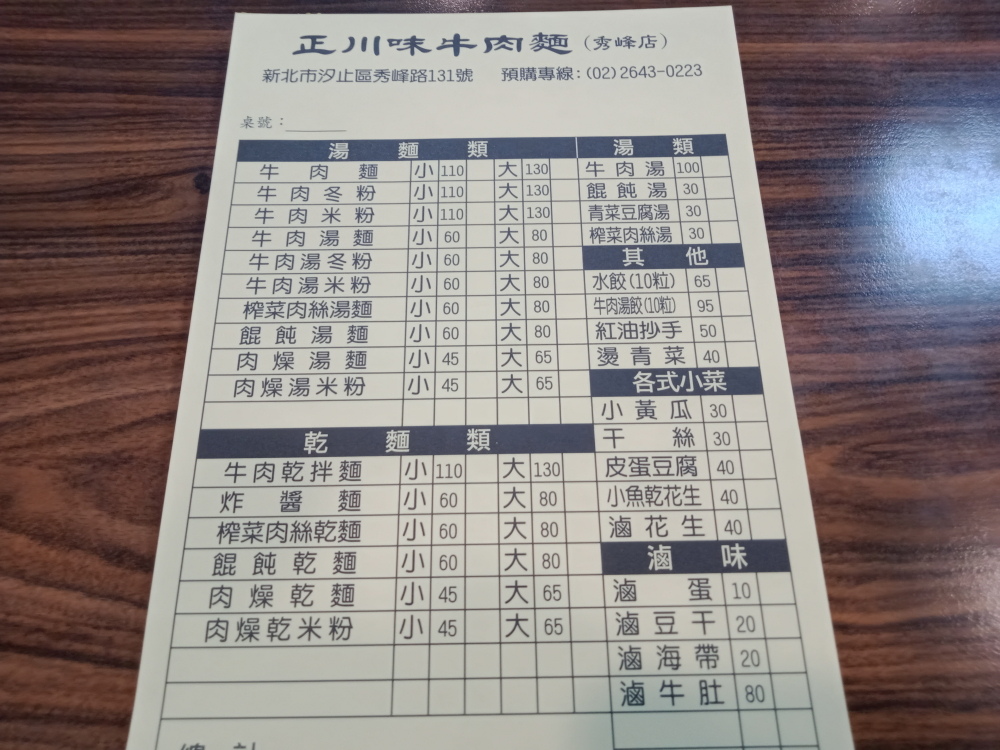 正川味牛肉麵(秀峰店)
新北市汐止區秀峰路131號 預購專線:(02)2643-0223
桌號:
湯麵類
牛肉麵 小 110 大 130
牛肉冬粉 小 110 大 130
牛肉米粉 小 110 大 130
牛肉湯麵 小 60 大 80
牛肉湯冬粉 小 60 大 80
牛肉湯米粉 小 60 大 80
榨菜肉絲湯麵 小 60 大 80
餛飩湯麵 小 60 大 80
肉燥湯麵 小 45 大 65
肉燥湯米粉 小 45 大 65
乾麵類
牛肉乾拌麵 小 110 大 130
炸醬麵 小 60 大 80
榨菜肉絲乾麵 小 60 大 80
餛飩乾麵 小 60 大 80
肉燥乾麵 小 45 大 65
肉燥乾米粉 小 45 大 65
湯類
牛肉湯 100
餛飩湯 30
青菜豆腐湯 30
榨菜肉絲湯 30
其他
水餃(10粒) 65
牛肉湯餃(10粒) 95
紅油抄手 50
燙青菜 40
各式小菜
小黃瓜 30
干絲 30
皮蛋豆腐 40
小魚乾花生 40
滷花生 40
滷味
滷蛋 10
滷豆干 20
滷海帶 20
滷牛肚 80